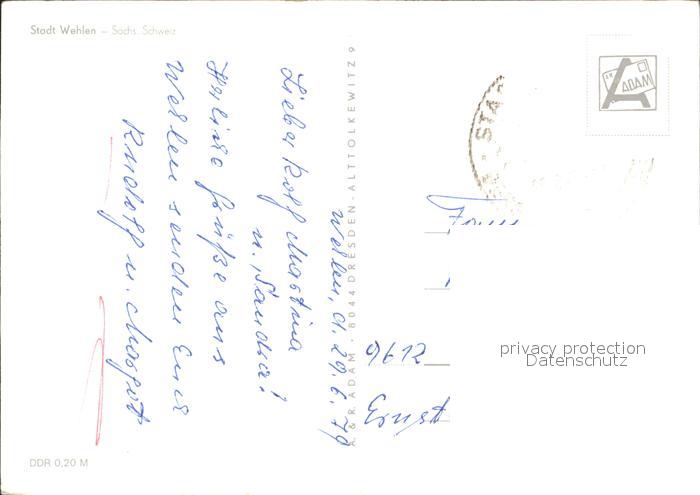 Stadt Wehlen – Sächs. Schweiz
Wehlen, d. 29. 6. 79
Lieber Rolf Martina
u. Sandra!
Herzliche Grüße aus
Wehlen senden Euch
Rudolf u. Margot
A & R ADAM · 8044 DRESDEN-ALTTOLKEWITZ 9
A & R ADAM
STA
Fam
9612
Ernst
privacy protection
Datenschutz
DDR 0,20 M